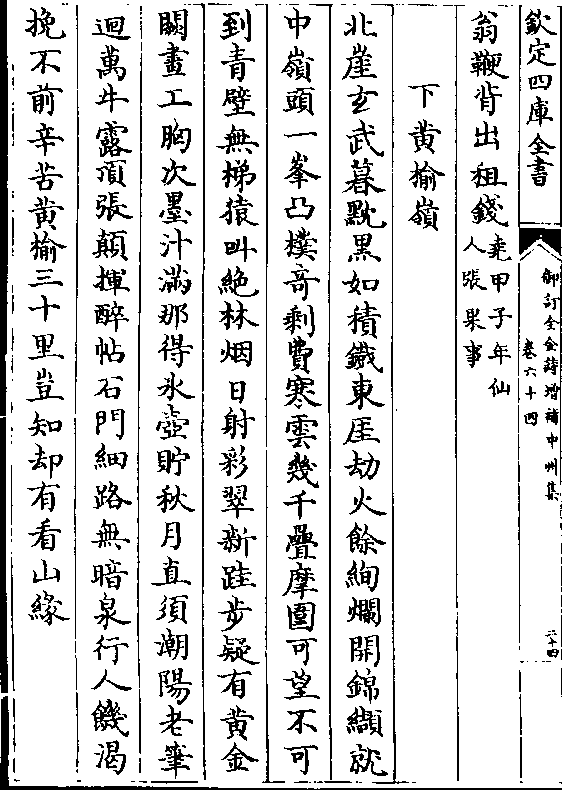 欽定四庫全書
御訂全金詩増補中州集
卷六十四
二十四
翁鞭背出租錢堯甲子年仙人張果事
下黄榆嶺
北崖玄武暮黕黒如積鐵東厓劫火餘絢爛開錦纈就
中嶺頭一峯凸樸竒剩費寒雲幾千疊摩圍可望不可
到青壁無梯猿叫絶林烟日射彩翠新跬步疑有黄金
闕畫工胸次墨汁滿那得氷壺貯秋月直須潮陽老筆
迴萬牛露頂張顛揮醉帖石門細路無暗泉行人饑渴
挽不前辛苦黄榆三十里豈知却有看山緣